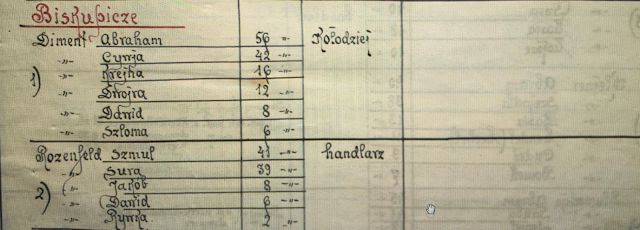 Biskupicze
Diment Abraham 56 -"- Kołodziej
-"- Cywja 42 -"-
1) -"- Krejna 16 -"-
-"- Dwojra 12 -"-
-"- Dawid 8 -"-
-"- Szloma 6 -"-
Rozenfeld Szmul 41 -"- handlarz
-"- Sura 39 -"-
2) -"- Jakób 8 -"-
-"- Dawid 6 -"-
-"- Rywka 2 -"-